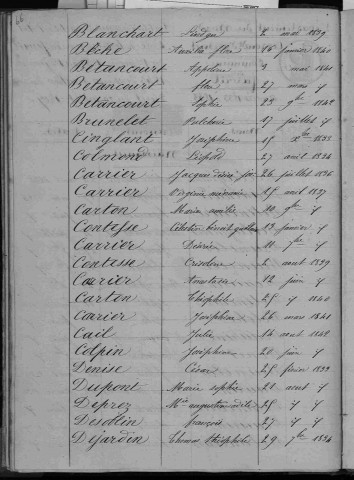 Blanchart 2 mai 1839
Bèche Aurélie flore 16 janvier 1840
Bétancourt Appoline 3 mai 1841
Betancourt flore 27 mars y
Betancourt Sophie 23 9bre 1842
Brunelet Pulchérie 17 juillet y
Cinglant Joséphine 15 Xbre 1833
Colmond Léopold 27 avril 1834
Carrier Jacques 26 juillet 1836
Carrier Virginie 25 avril 1837
Carton Marie 10 9bre y
Contesse 13 janvier y
Carrier Désirée 11 7bre y
Contesse 2 aout 1839
Carrier Anastasie 12 juin y
Carton Théophile 25 y 1840
Carrier Joséphine 26 mars 1841
Cail Julie 14 aout 1842
Colpin Joséphine 20 juin y
Denise César 25 février 1833
Dupont Marie sophie 21 aout y
Déprez Mie augustine odile 25 y y
Desoblin françois 27 y y
Dejardin Thomas théophile 29 7bre 1834